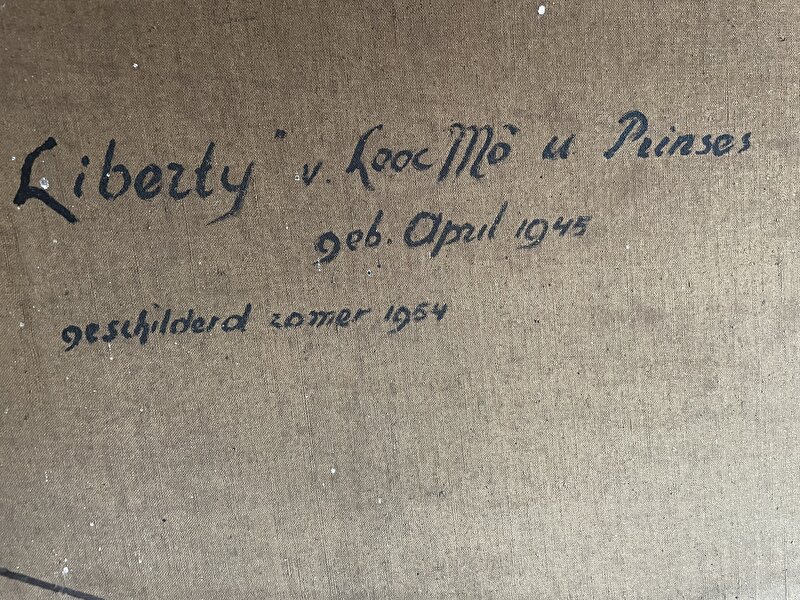 Liberty" v. Looc Mô u Prinses
geb. April 1945
geschilderd zomer 1954